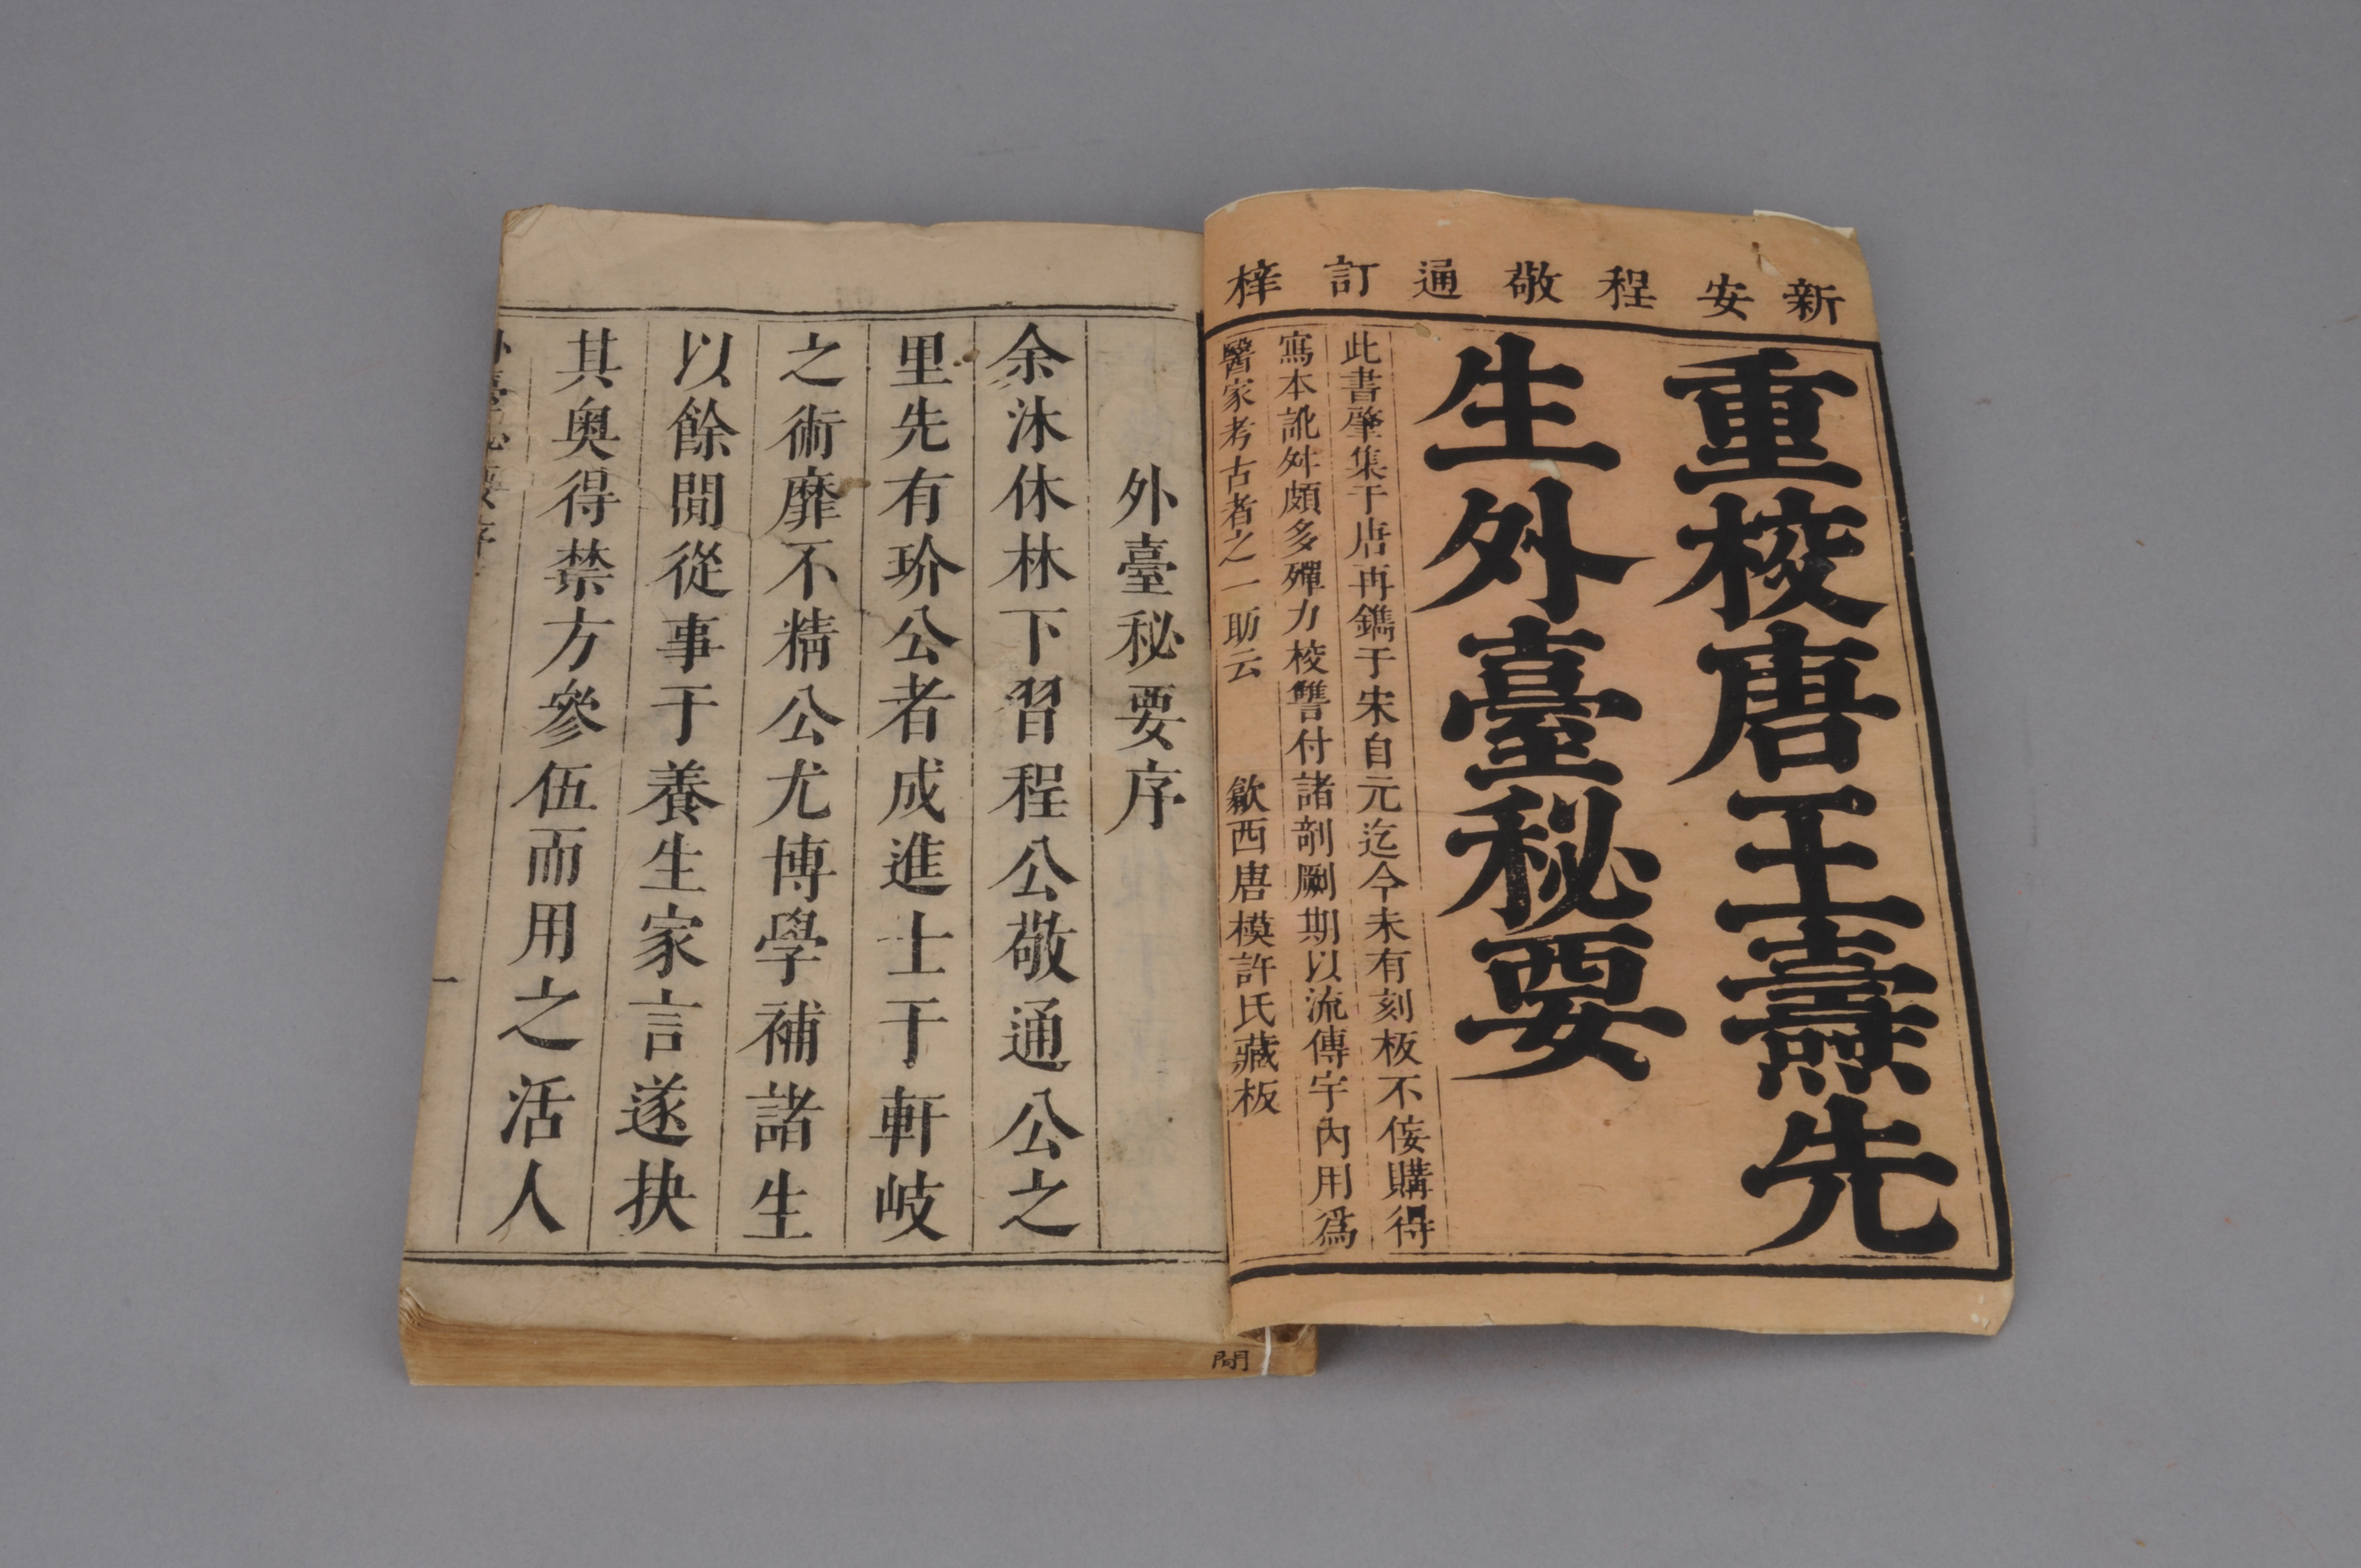 新安程敬通訂梓
重校唐王燾先
生外臺秘要
此書肇集于唐再鐫于宋自元迄今未有刻板不侫購得
寫本訛舛頗多殫力校讐付諸剞劂期以流傳宇內用爲
醫家考古者之一助云 歙西唐模許氏藏板
外臺秘要序
余沐休林下習程公敬通公之
里先有玠公者成進士于軒岐
之術靡不精公尤博學補諸生
以餘閒從事于養生家言遂抉
其奥得禁方參伍而用之活人
外臺秘要序
一